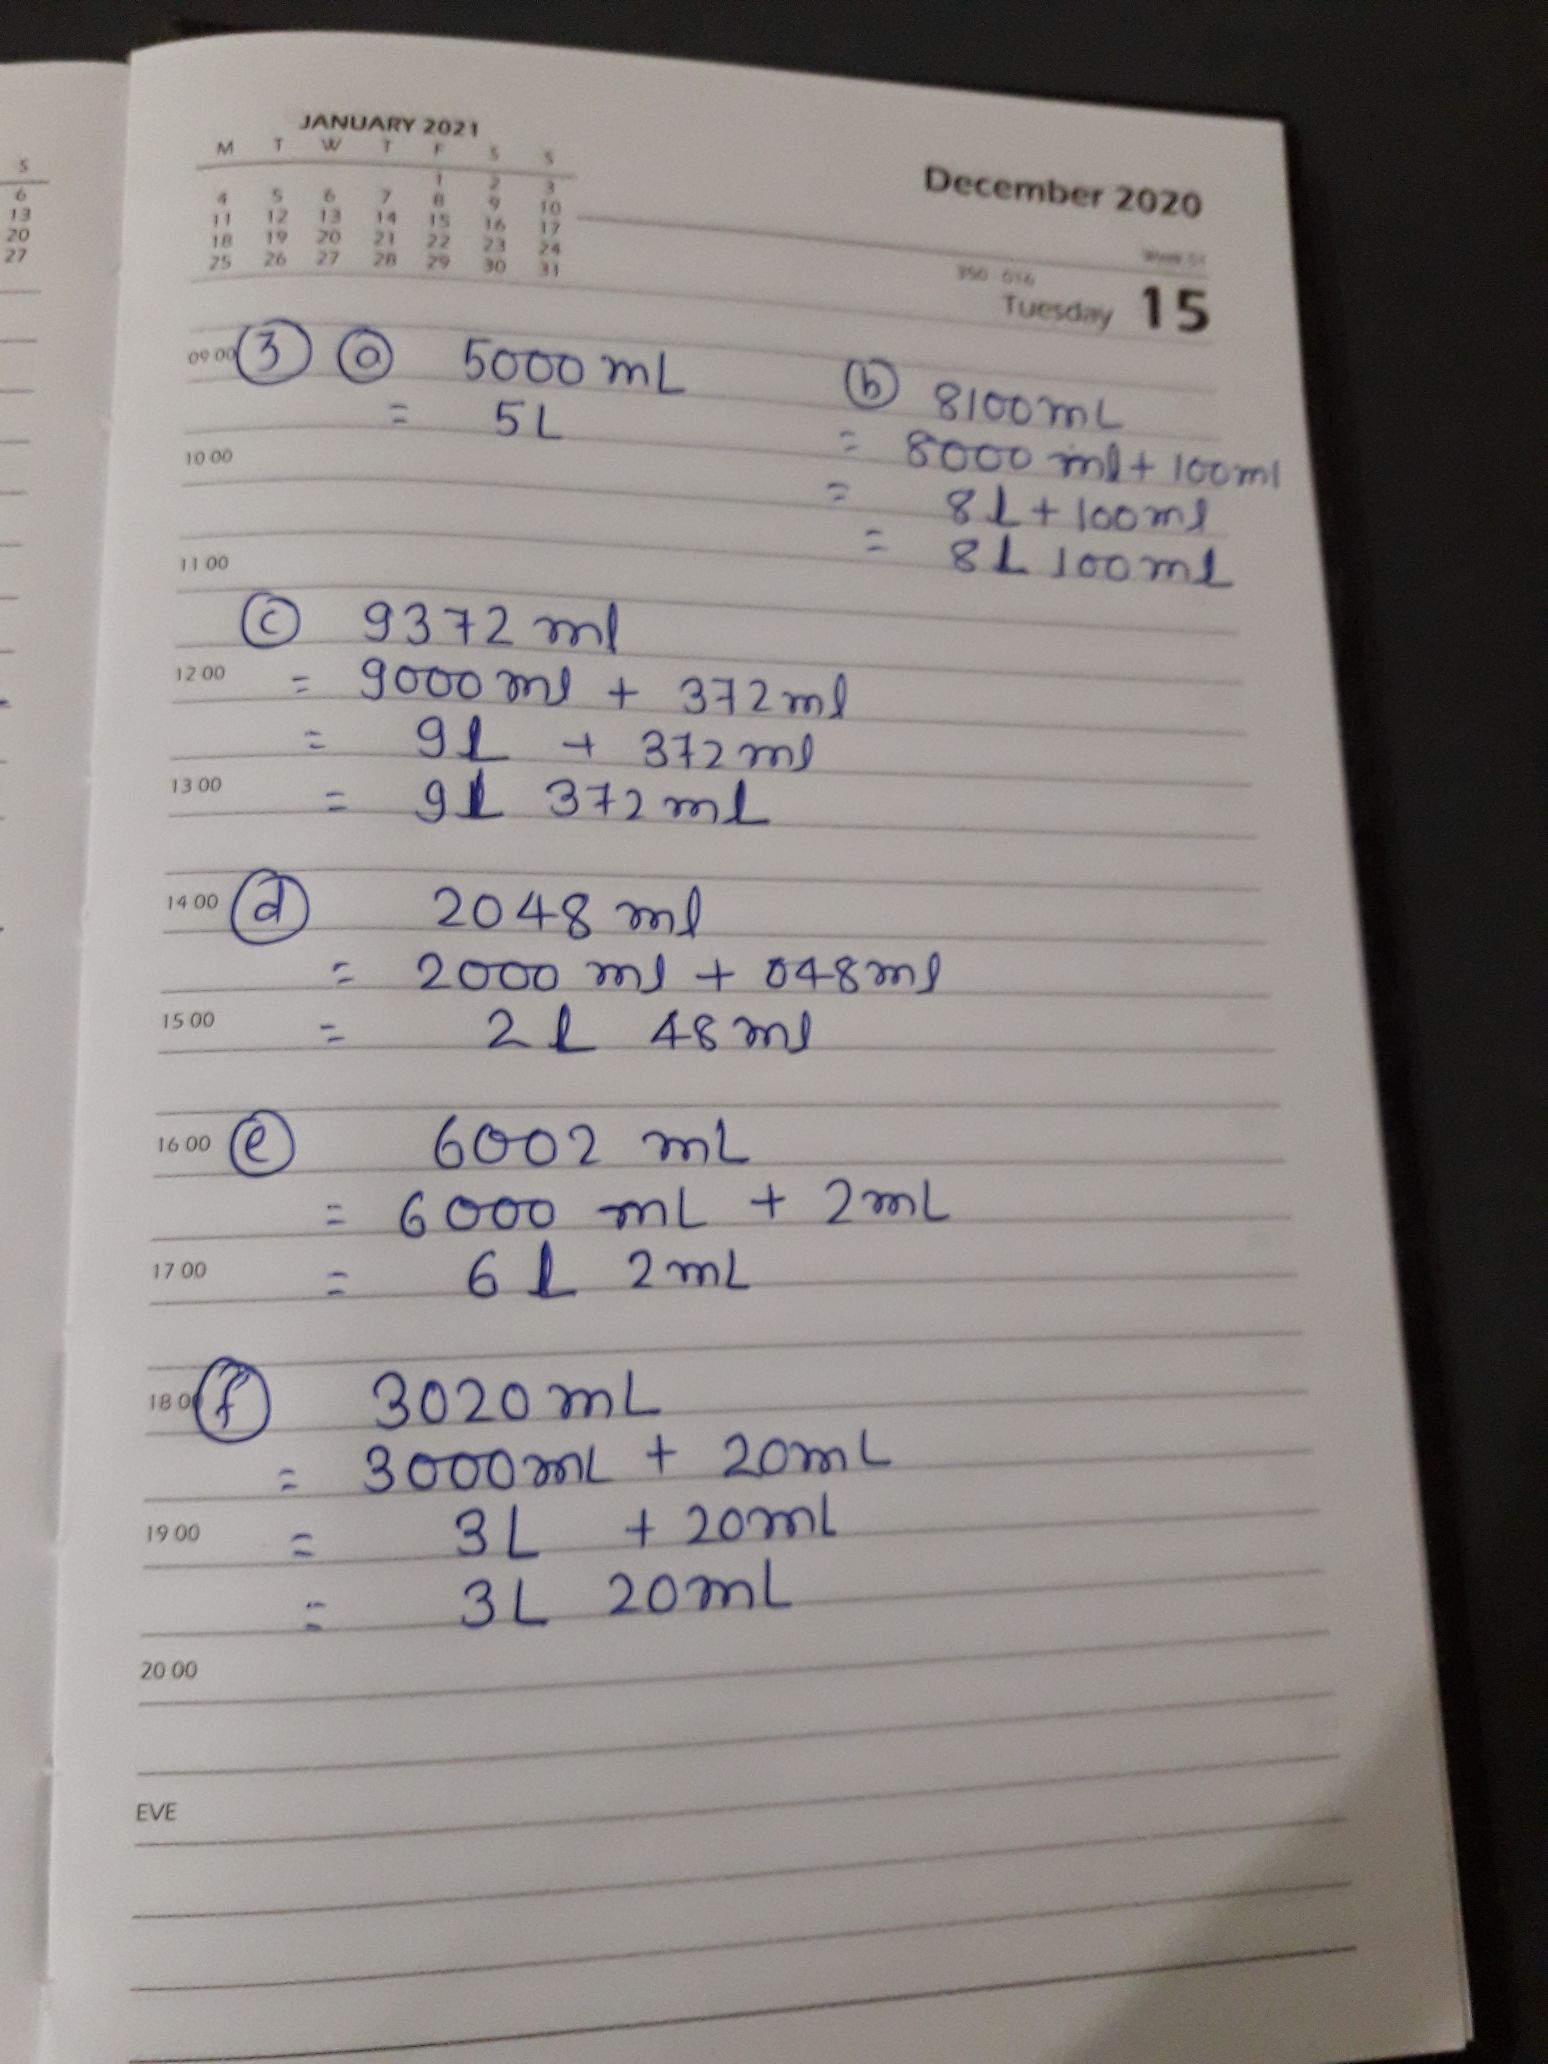 JANUARY 2021
M T W T F S S
1 2 3
4 5 6 7 8 9 10
11 12 13 14 15 16 17
18 19 20 21 22 23 24
25 26 27 28 29 30 31
December 2020
350 016
Tuesday 15
S
6
13
20
27
09 00
3 a 5000 mL
= 5L
b 8100mL
= 8000 ml + 100ml
= 8L + 100ml
= 8L 100ml
10 00
11 00
c 9372 ml
12 00
= 9000 ml + 372 ml
= 9L + 372 ml
13 00
= 9L 372 mL
14 00
d 2048 ml
= 2000 ml + 048 ml
15 00
= 2 L 48 ml
16 00
e 6002 mL
= 6000 mL + 2 mL
17 00
= 6 L 2 mL
18 00
f 3020 mL
= 3000 mL + 20mL
19 00
= 3L + 20mL
= 3L 20mL
20 00
EVE